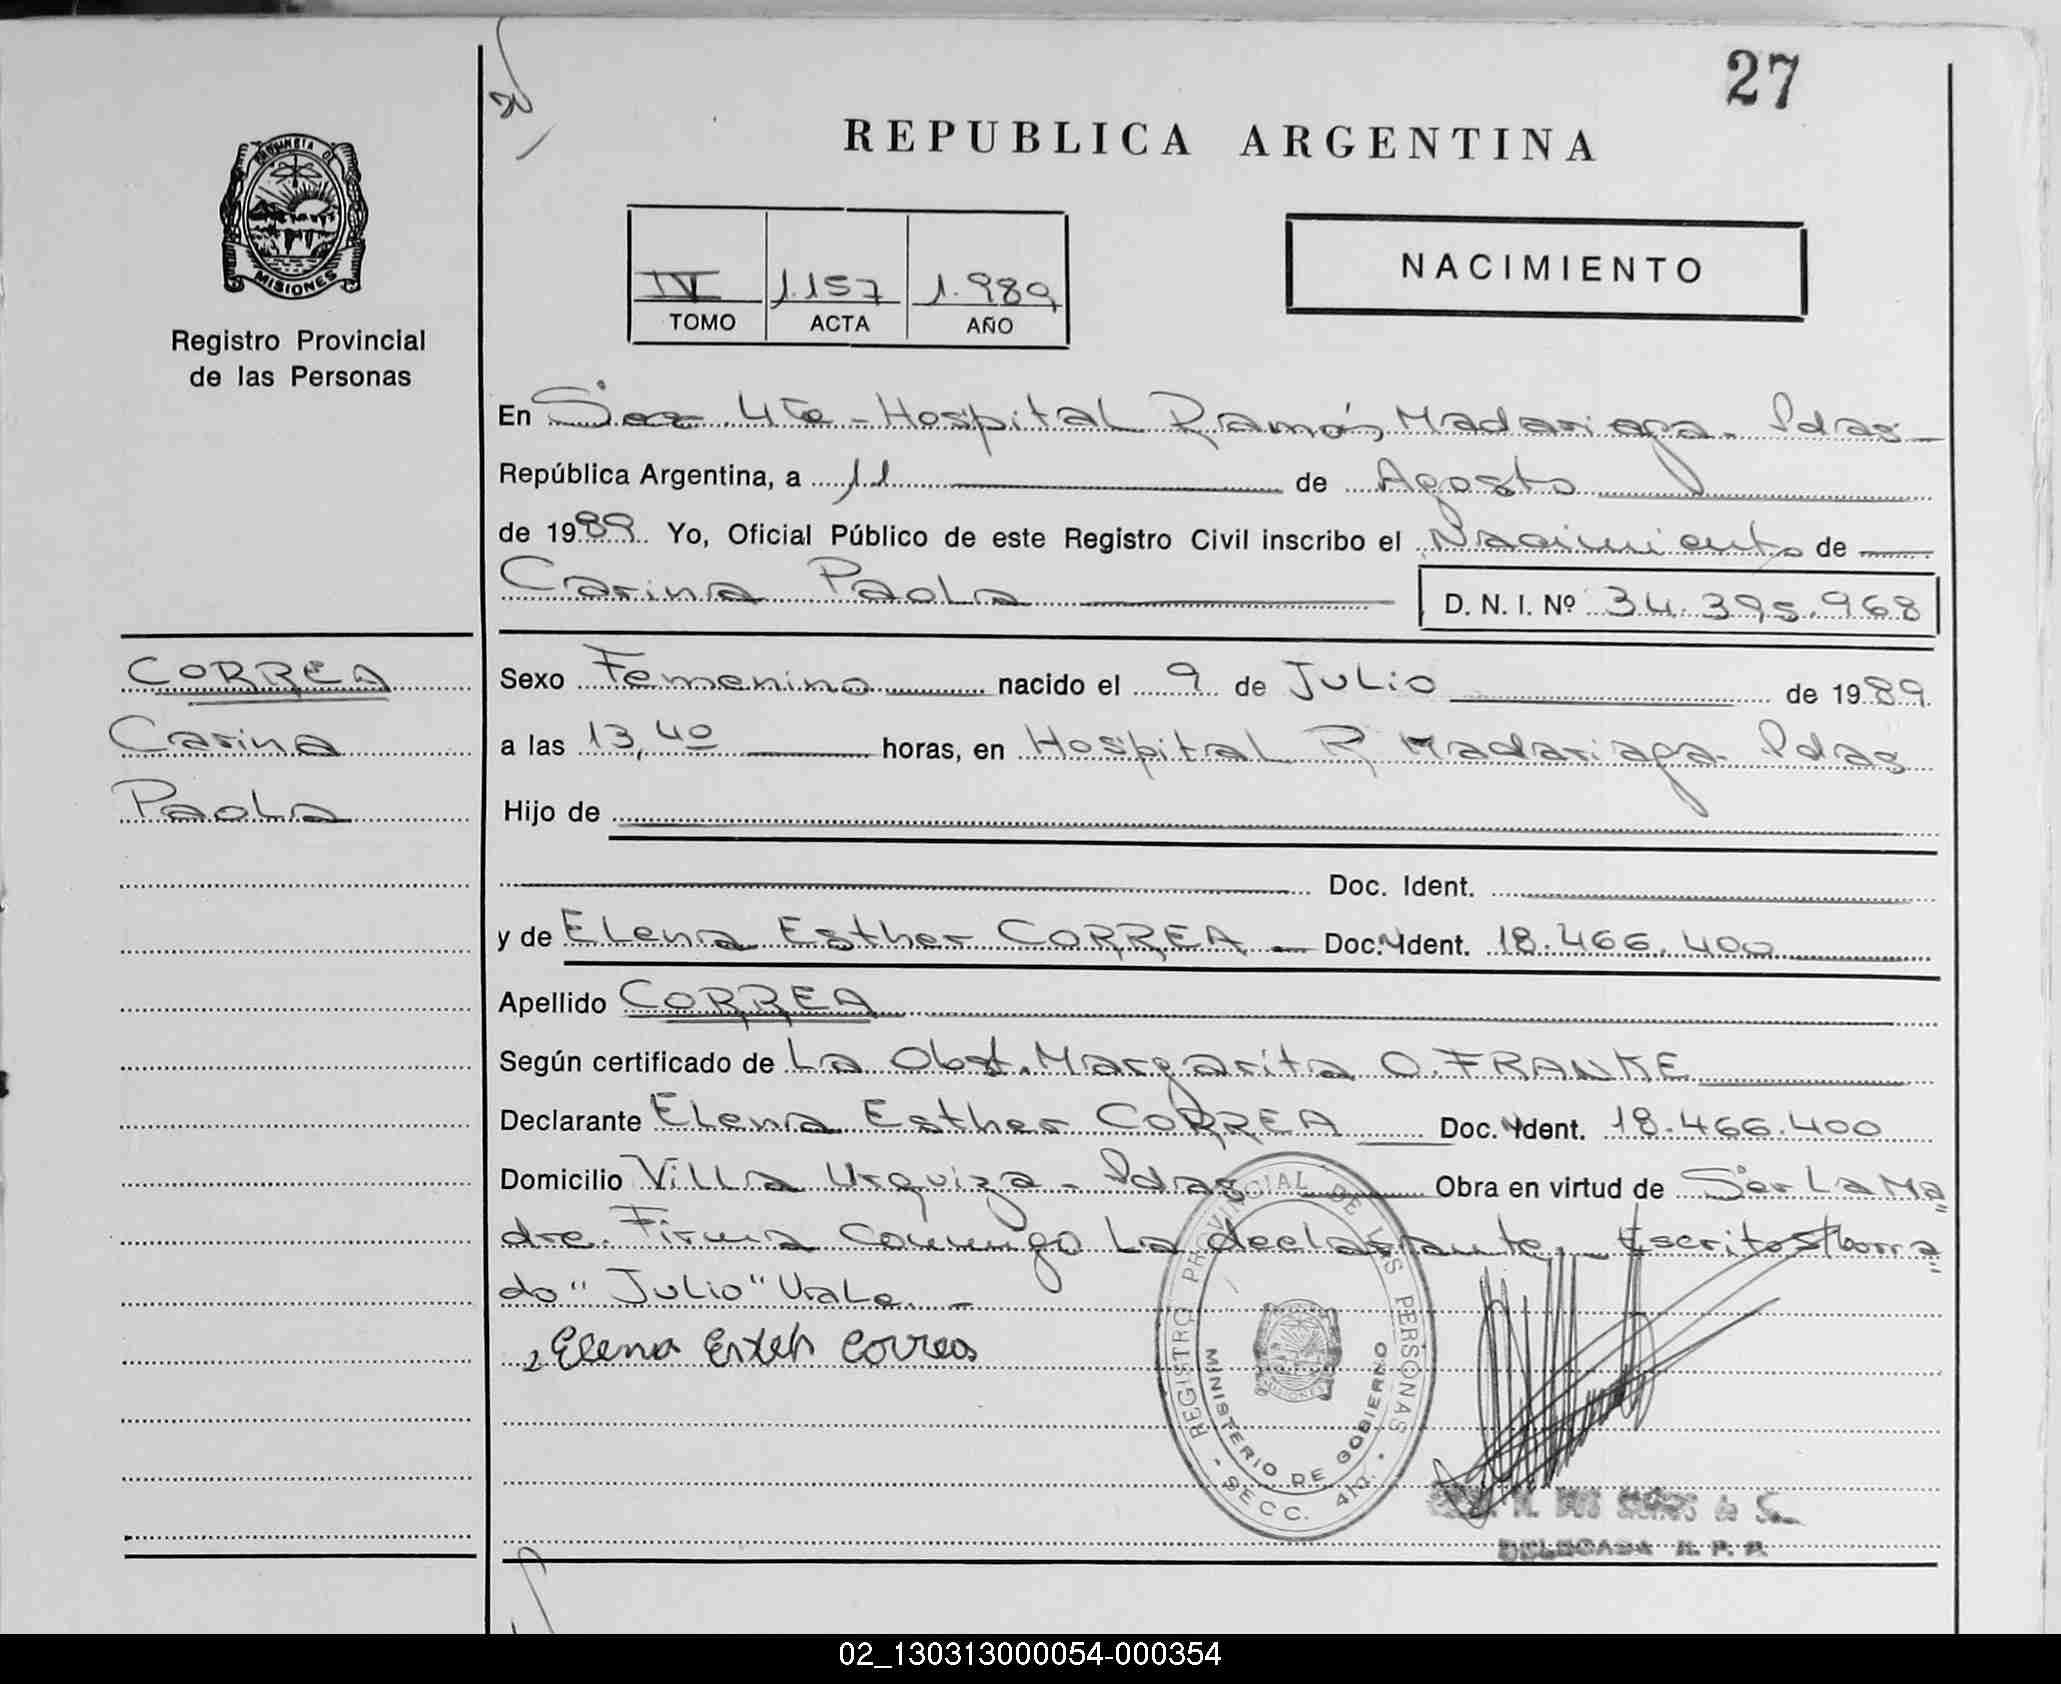 27
REPUBLICA ARGENTINA
PROVINCIA DE
MISIONES
Registro Provincial
de las Personas
NACIMIENTO
IV 1.157 1.989
TOMO ACTA AÑO
En Secc 4ta - Hospital Ramón Madariaga - Pdas -
República Argentina, a 11 de Agosto
de 1989. Yo, Oficial Público de este Registro Civil inscribo el Nacimiento de
Carina Paola
D. N. I. Nº 34.395.968
CORREA
Carina
Paola
Sexo Femenino nacido el 9 de Julio de 1989.
a las 13,40 horas, en Hospital R Madariaga - Pdas
Hijo de
Doc. Ident.
y de Elena Esther CORREA - Doc. Ident. 18.466.400
Apellido CORREA
Según certificado de La Obst. Margarita O. FRANKE
Declarante Elena Esther CORREA Doc. Ident. 18.466.400
Domicilio Villa Urquiza - Pdas Obra en virtud de Ser La Ma"
dre. Firma Conmigo La declarante. - Escrito s/borra"
do "Julio" Vale. -
Elena Esteh Correa
REGISTRO PROVINCIAL DE LAS PERSONAS
MINISTERIO DE GOBIERNO
- SECC. 4ta. -
DOS SANTOS de S.
DELEGADA R. P. P.
02_130313000054-000354